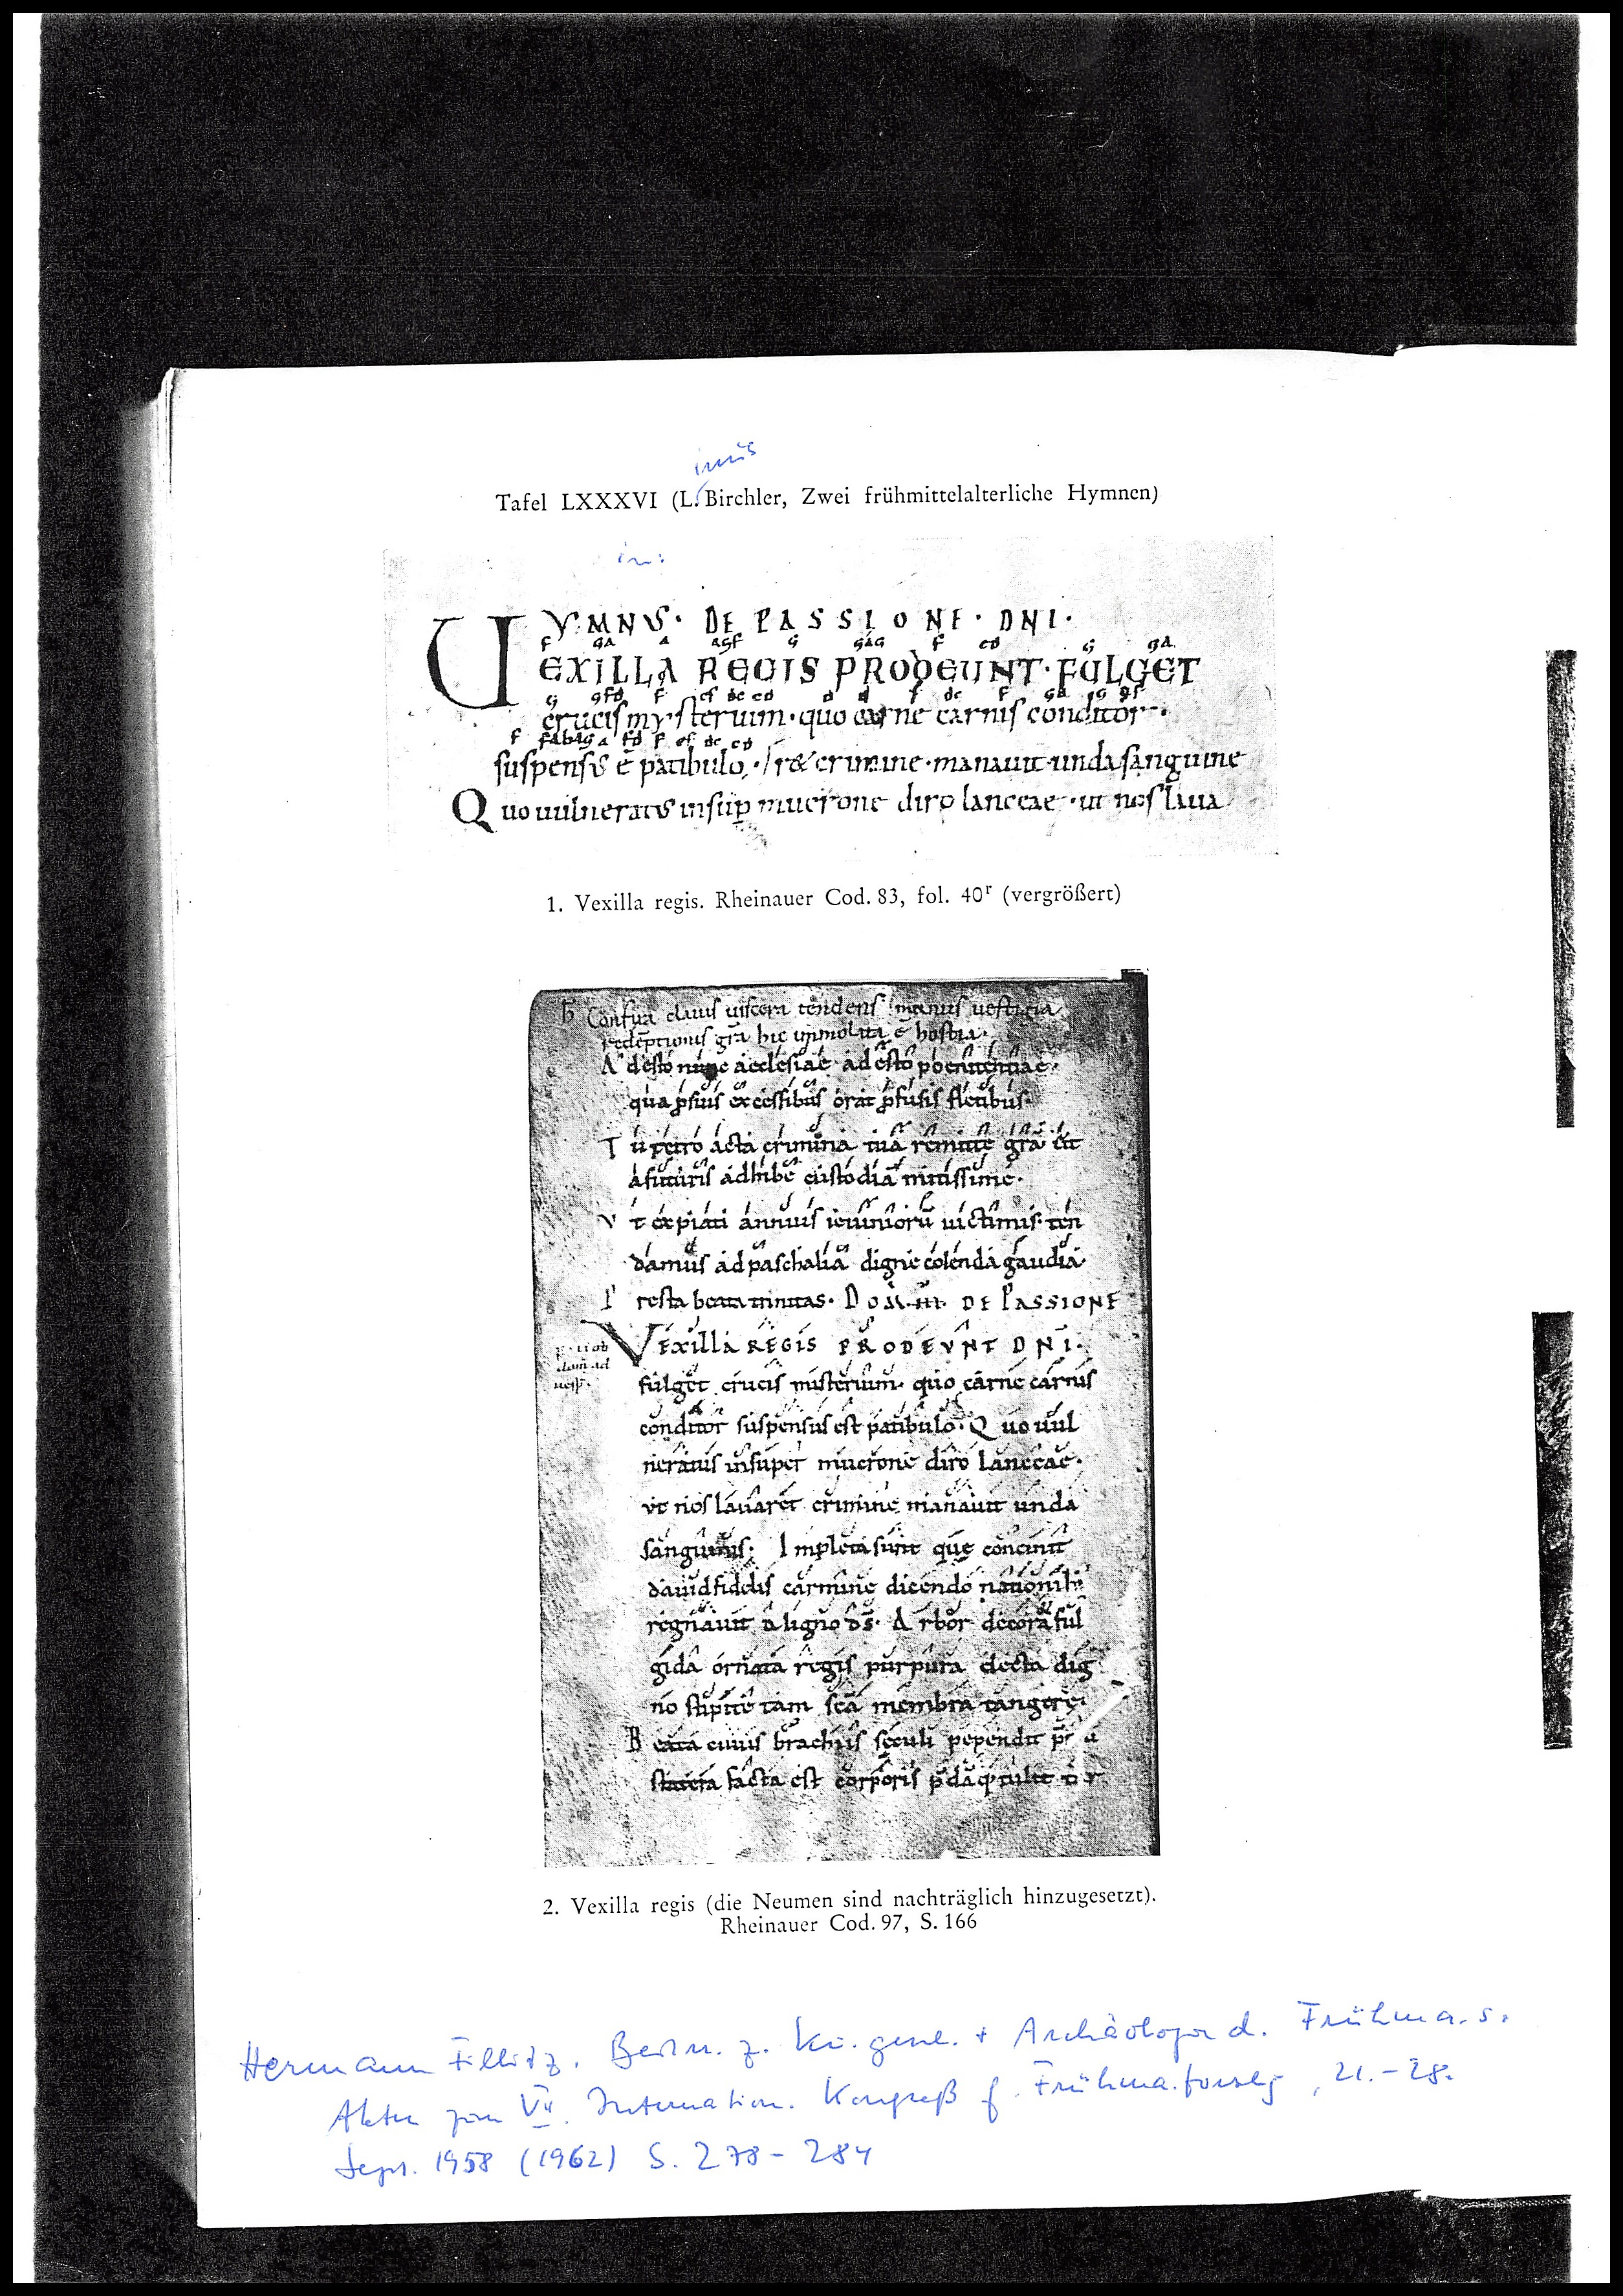 inus
Tafel LXXXVI (L. Birchler, Zwei frühmittelalterliche Hymnen)
in:
YMNUS · DE PASSIONE · DNI ·
f ga a agf g gag f cd g ga
UEXILLA REGIS PRODEUNT · FULGET
g gfd f ef dc cd d d f dc f ga g gf
crucis mysterium · quo carne carnis conditor ·
f fabag a fd f ef dc cd
suspensus ē patibulo · / r& crimine · manauit unda sanguine
Quo uulneratus insup mucrone diro lanceae · ut nos laua
1. Vexilla regis. Rheinauer Cod. 83, fol. 40r (vergrößert)
Confixa clauis uiscera tendens manus uestigia
redēptionis grā hic immolata ē hostia ·
Adesto nunc aecclesiae adesto poenitentiae ·
qua psuis excessibus orat pfusis fletibus ·
Tu retro acta crimina tua remitte grā et
afuturis adhibe custodiā mitissime ·
Vt expiati annuis ieiuniorū uictimis · ten
damus ad paschalia digne colenda gaudia ·
Presta beata trinitas · DOM · III · DE PASSIONE
VEXILLA REGIS PRODEVNT DNI ·
fulget crucis misterium · quo carne carnis
conditor suspensus est patibulo · Quo uul
neratus insuper mucrone diro lanceae ·
ut nos lauaret crimine manauit unda
sanguinis · Impleta sunt quę concinit
dauid fidelis carmine dicendo nationib;
regnauit a ligno ds · Arbor decora ful
gida ornata regis purpura electa dig
no stipite tam scā membra tangere ·
Beata cuius brachiis seculi pependit
statera facta est corporis pdāq tulit
2. Vexilla regis (die Neumen sind nachträglich hinzugesetzt).
Rheinauer Cod. 97, S. 166
Hermann Fillitz. Beitr. z. Ku. gesch. + Archäologie d. Frühma. s.
Akten zum VII. Internation. Kongreß f. Frühma. forschg, 21.-28.
Sept. 1958 (1962) S. 278-284